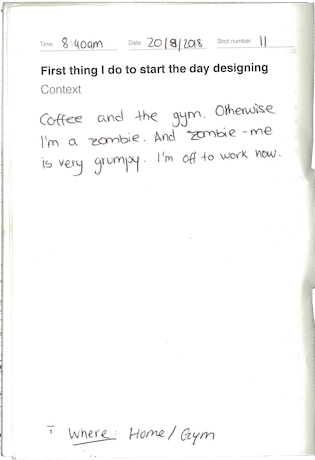 Time 8:40am Date 20/8/2018 Shot number 11
First thing I do to start the day designing
Context
Coffee and the gym. Otherwise
I'm a zombie. And zombie-me
is very grumpy. I'm off to work now.
Where: Home/Gym